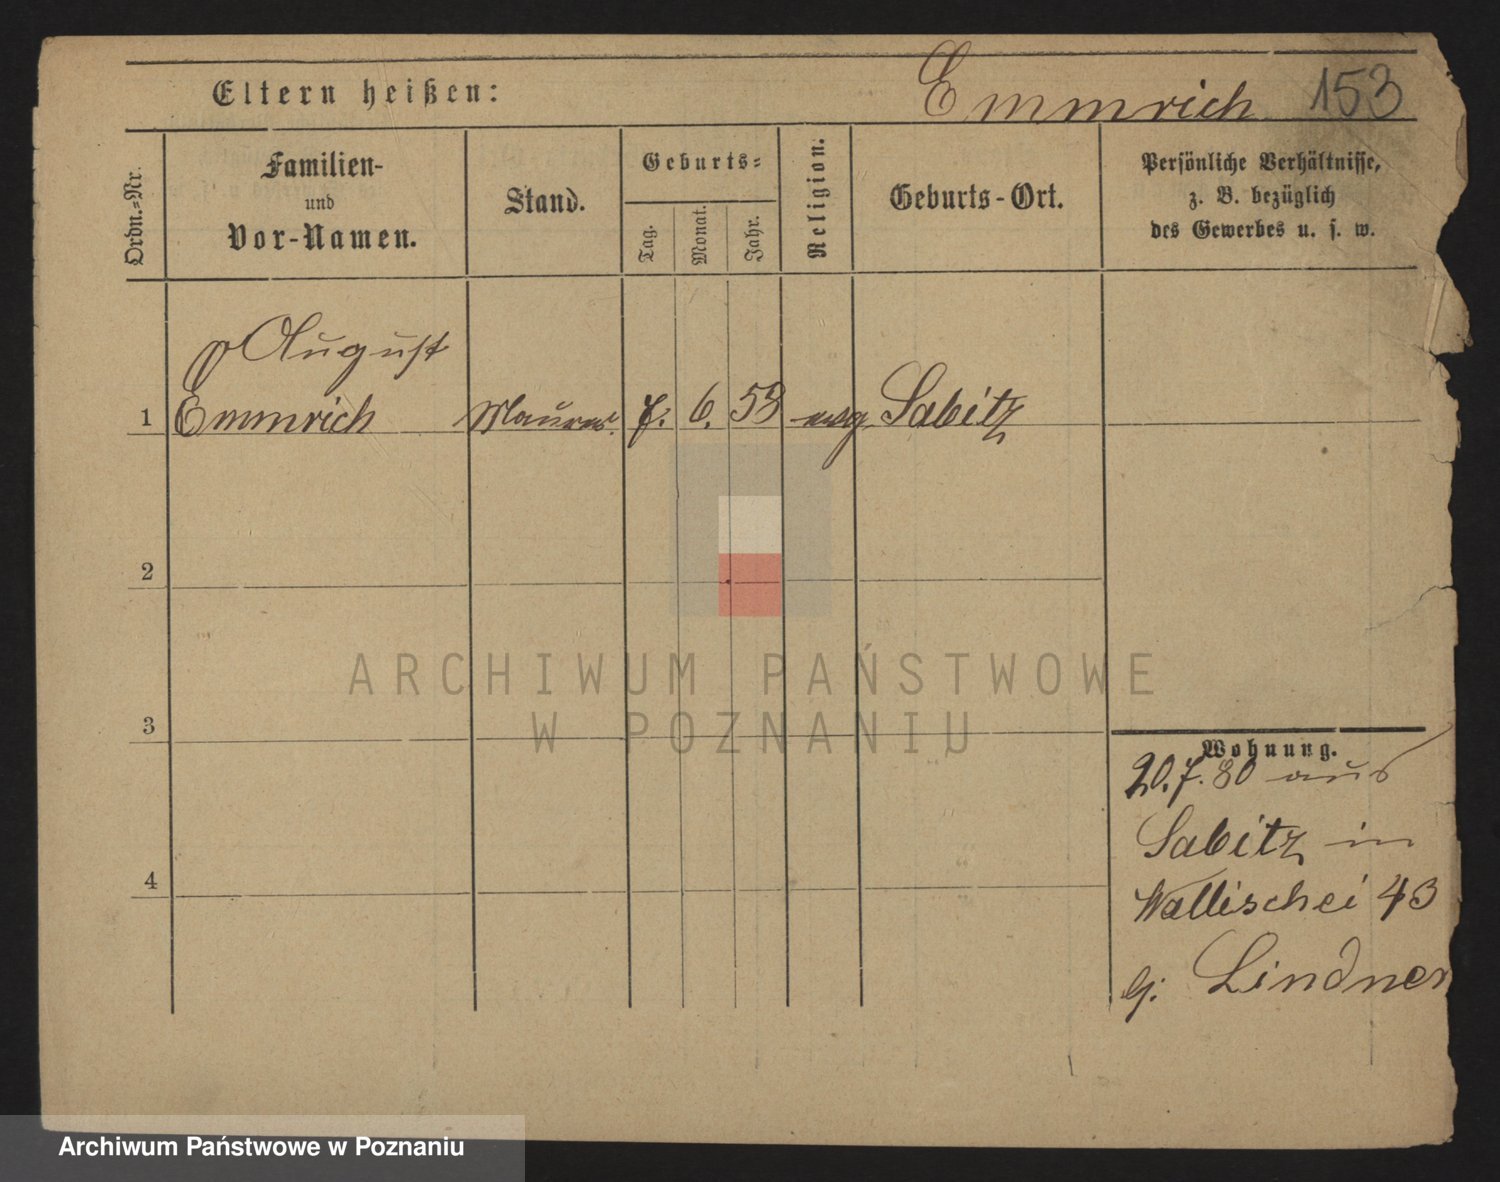 Eltern heißen:
Emmrich 153
Ordn.=Nr.
Familien-
und
Vor-Namen.
Stand.
Geburts=
Tag.
Monat.
Jahr.
Religion.
Geburts-Ort.
Persönliche Verhältnisse,
z. B. bezüglich
des Gewerbes u. s. w.
August
1 Emmrich Maurer. 7. 6. 58 evg. Sabitz
2
3
4
Wohnung.
20.7.80 aus
Sabitz in
Wallischei 43
Lindner
ARCHIWUM PAŃSTWOWE
W POZNANIU
Archiwum Państwowe w Poznaniu